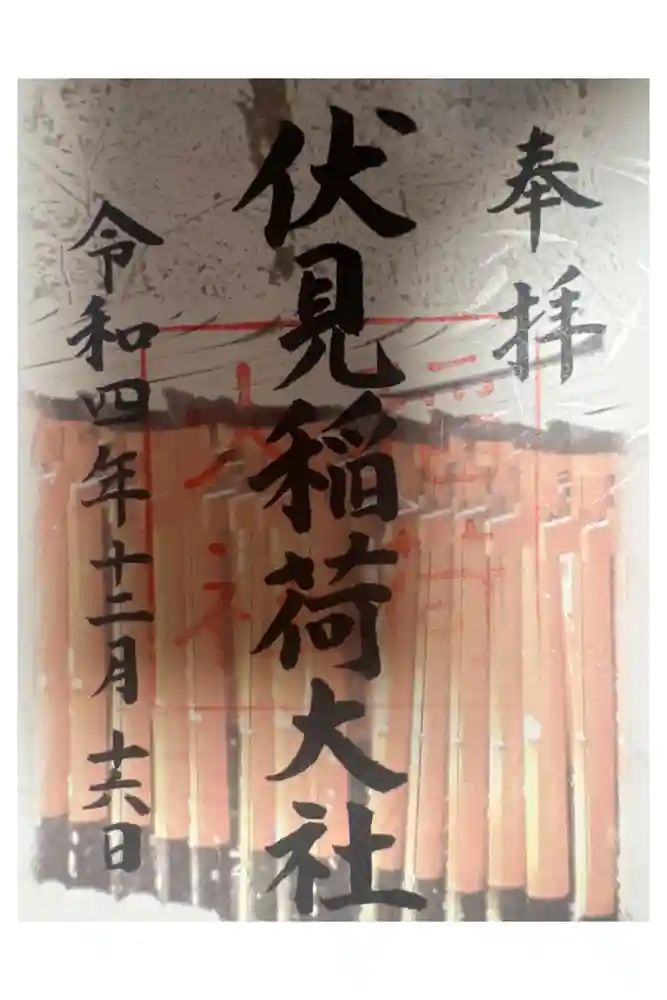 奉拝
伏見稲荷大社
令和四年十二月十六日